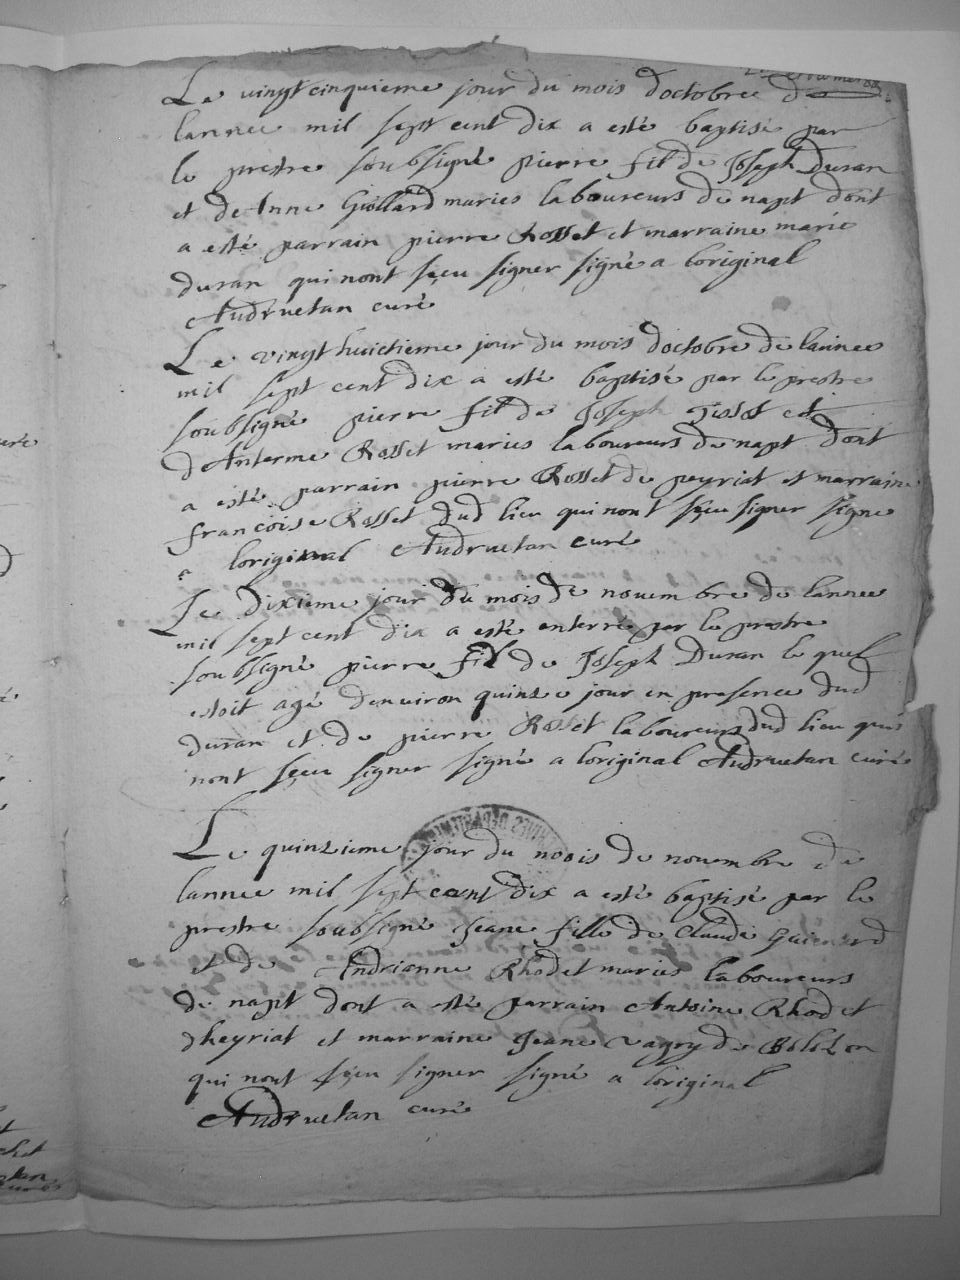 Le vingt cinquieme jour du mois doctobre de
lannee mil sept cent dix a esté baptisé par
le prestre soubsigné pierre fil de Joseph Duran
et de Anne Goillard maries laboureurs de napt dont
a esté parrain pierre Rosset et marraine marie
duran qui nont sçeu signer signé a loriginal
Audruetan curé
Le vingt huictieme jour du mois doctobre de lannee
mil sept cent dix a esté baptisé par le prestre
soubsigné pierre fil de Joseph Tissot et
dAnterme Rosset maries laboureurs de napt dont
a esté parrain pierre Rosset de peyriat et marraine
francoise Rosset dud lieu qui nont sçeu signer signe
a loriginal Audruetan curé
Le dixieme jour du mois de nouembre de lannee
mil sept cent dix a esté enterré par le prestre
soubsigné pierre fil de Joseph Duran le quel
estoit agé denuiron quinze jour en presence dud
duran et de pierre Rosset laboureurs dud lieu qui
nont sçeu signer signé a loriginal Audruetan curé
Le quinzieme jour du moois de nouembre de
lannee mil sept cent dix a esté baptisé par le
prestre soubsigné Jeane fille de Claude
et de Andrianne Rhodet maries laboureurs
de napt dont a esté parrain Antoine Rhodet
dheyriat et marraine Jeane vagry de
qui nont sçeu signer signé a loriginal
Audruetan curé